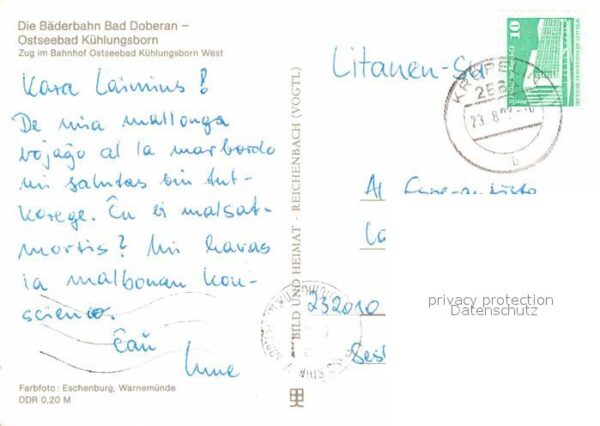 Die Bäderbahn Bad Doberan –
Ostseebad Kühlungsborn
Zug im Bahnhof Ostseebad Kühlungsborn West
Kara Laimius!
De mia mallonga
vojaĝo al la marbordo
mi salutas vin tut-
korege. Ĉu vi malsat-
mortis? Mi havas
ia malbonan kon-
sciencon.
Ĉaŭ
Farbfoto: Eschenburg, Warnemünde
DDR 0,20 M
BILD UND HEIMAT · REICHENBACH (VOGTL)
Litauen-
10
256
23.8.
b
Al Esperantisto
La
232010
privacy protection
Datenschutz